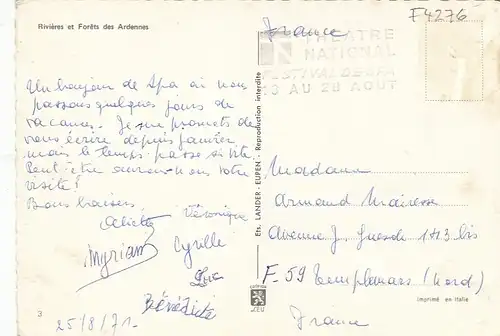 Rivières et Forêts des Ardennes
F4276
France
THEATRE
NATIONAL
FESTIVAL DE SPA
AU 28 AOUT
Un bonjour de Spa où nous
passons quelques jours de
vacances. Je me promets de
vous écrire depuis janvier
mais le temps passe si vite.
Peut-être aurons-nous votre
visite!
Bons baisers,
Véronique
Myriam Cyrille
Luc
Bénédicte
25/8/71-
3
Ets. LANDER - EUPEN - Reproduction interdite
Madame
Armand
Avenue J. Guesde 143 bis
F-59 Templemars (Nord)
France
Imprimé en Italie